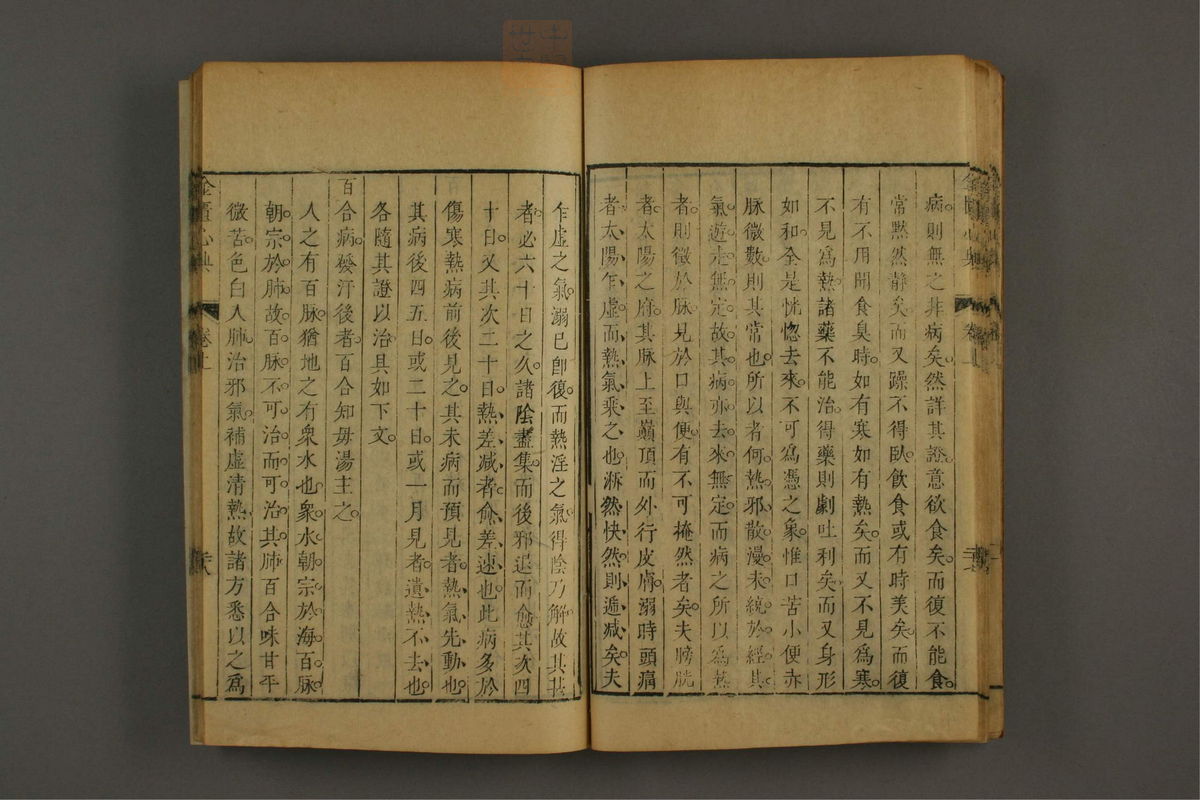 病則無之非病矣然詳其證意欲食矣而復不能食
常默然靜矣而又躁不得臥飲食或有時美矣而復
有不用聞食臭時如有寒如有熱矣而又不見為寒
不見為熱諸藥不能治得藥則劇吐利矣而又身形
如和全是恍惚去來不可為憑之象惟口苦小便赤
脉微數則其常也所以者何熱邪散漫未統於經其
氣遊走無定故其病亦去來無定而病之所以為熱
者則徵於脉見於口與便有不可掩然者矣夫膀胱
者太陽之府其脉上至巔頂而外行皮膚溺時頭痛
者太陽乍虛而熱氣乘之也淅然快然則遞減矣夫
乍虛之氣溺已即復而熱淫之氣得陰乃解故其甚
者必六十日之久諸陰盡集而後邪退而愈其次四
十日又其次二十日熱差減者愈差速也此病多於
傷寒熱病前後見之其未病而預見者熱氣先動也
其病後四五日或二十日或一月見者遺熱不去也
各隨其證以治具如下文
百合病發汗後者百合知毋湯主之
人之有百脉猶地之有衆水也衆水朝宗於海百脉
朝宗於肺故百脉不可治而可治其肺百合味甘平
微苦色白入肺治邪氣補虛清熱故諸方悉以之為
金匱心典
卷上